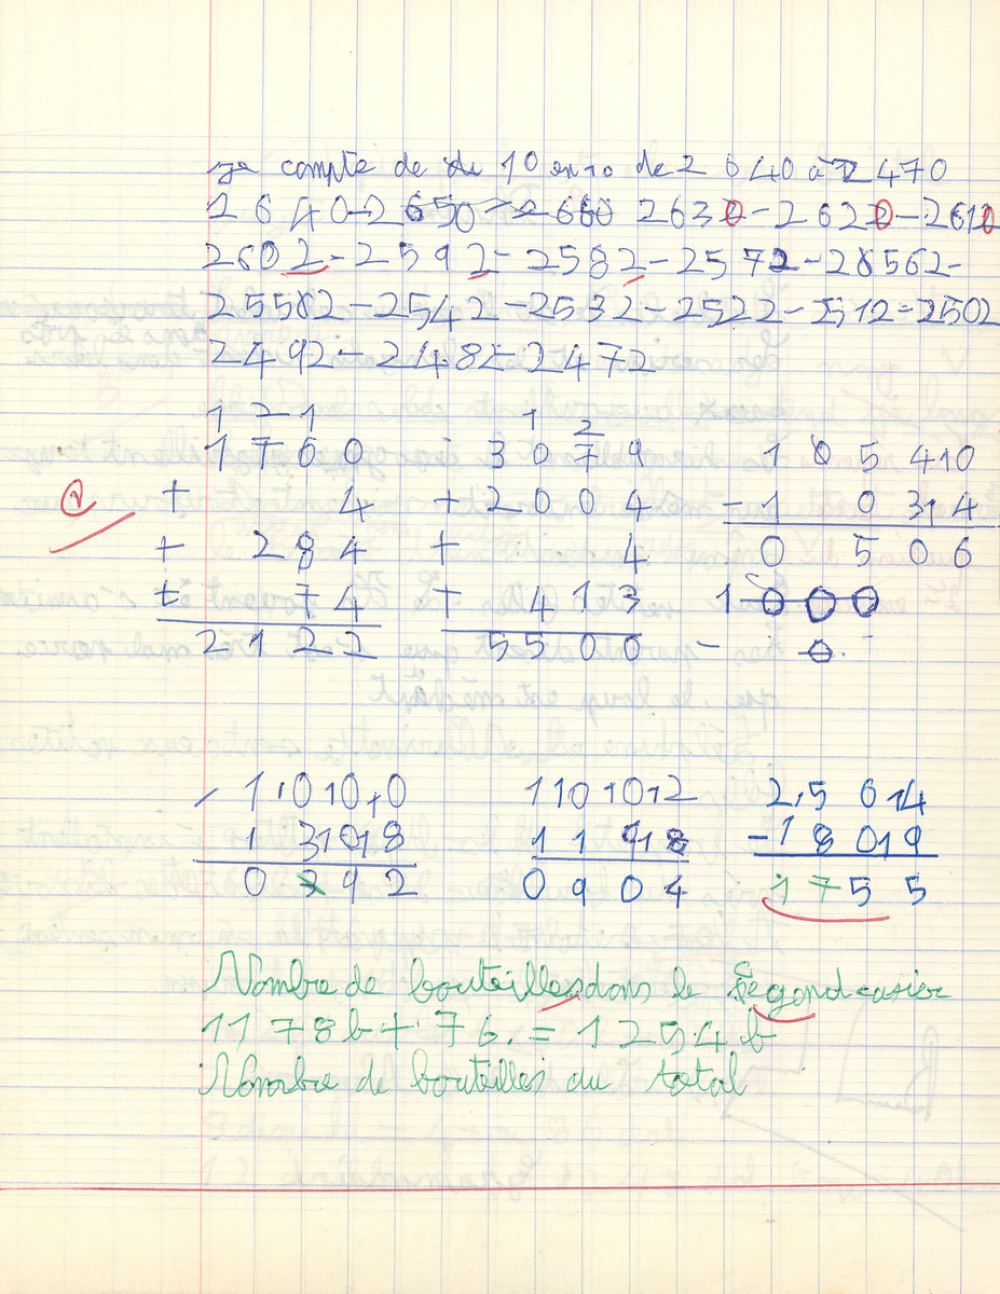 je compte de de 10 en 10 de 2 640 à 2 470
2640-2650-2660 2630-2620-2610
2602-2592-2582-2572-28562-
25582-2542-2532-2522-2512-2502
2492-2482-2472
1 2 1 1 2
1760 3079 105410
+ 4 + 2004 - 1 0314
+ 284 + 4 0 506
+ 74 + 413 1000
2122 5500 - 0.
- 1,01010 1101012 2,5 614
1 31018 11 918 - 1 8019
0 392 0904 1755
Nombre de bouteilles dans le segond casier
1178 b + 76. = 1254 b
Nombre de bouteilles au total